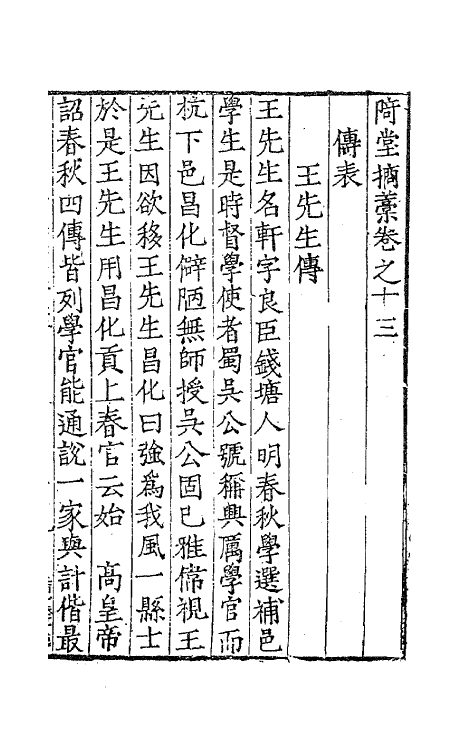 陭堂摘藁卷之十三
傳表
王先生傳
王先生名軒字良臣錢塘人明春秋學選補邑
學生是時督學使者蜀吳公號稱興厲學官而
杭下邑昌化僻陋無師授吳公固已雅俻視王
先生因欲移王先生昌化曰強爲我風一縣士
於是王先生用昌化貢上春官云始 高皇帝
詔春秋四傳皆列學官能通說一家與計偕最